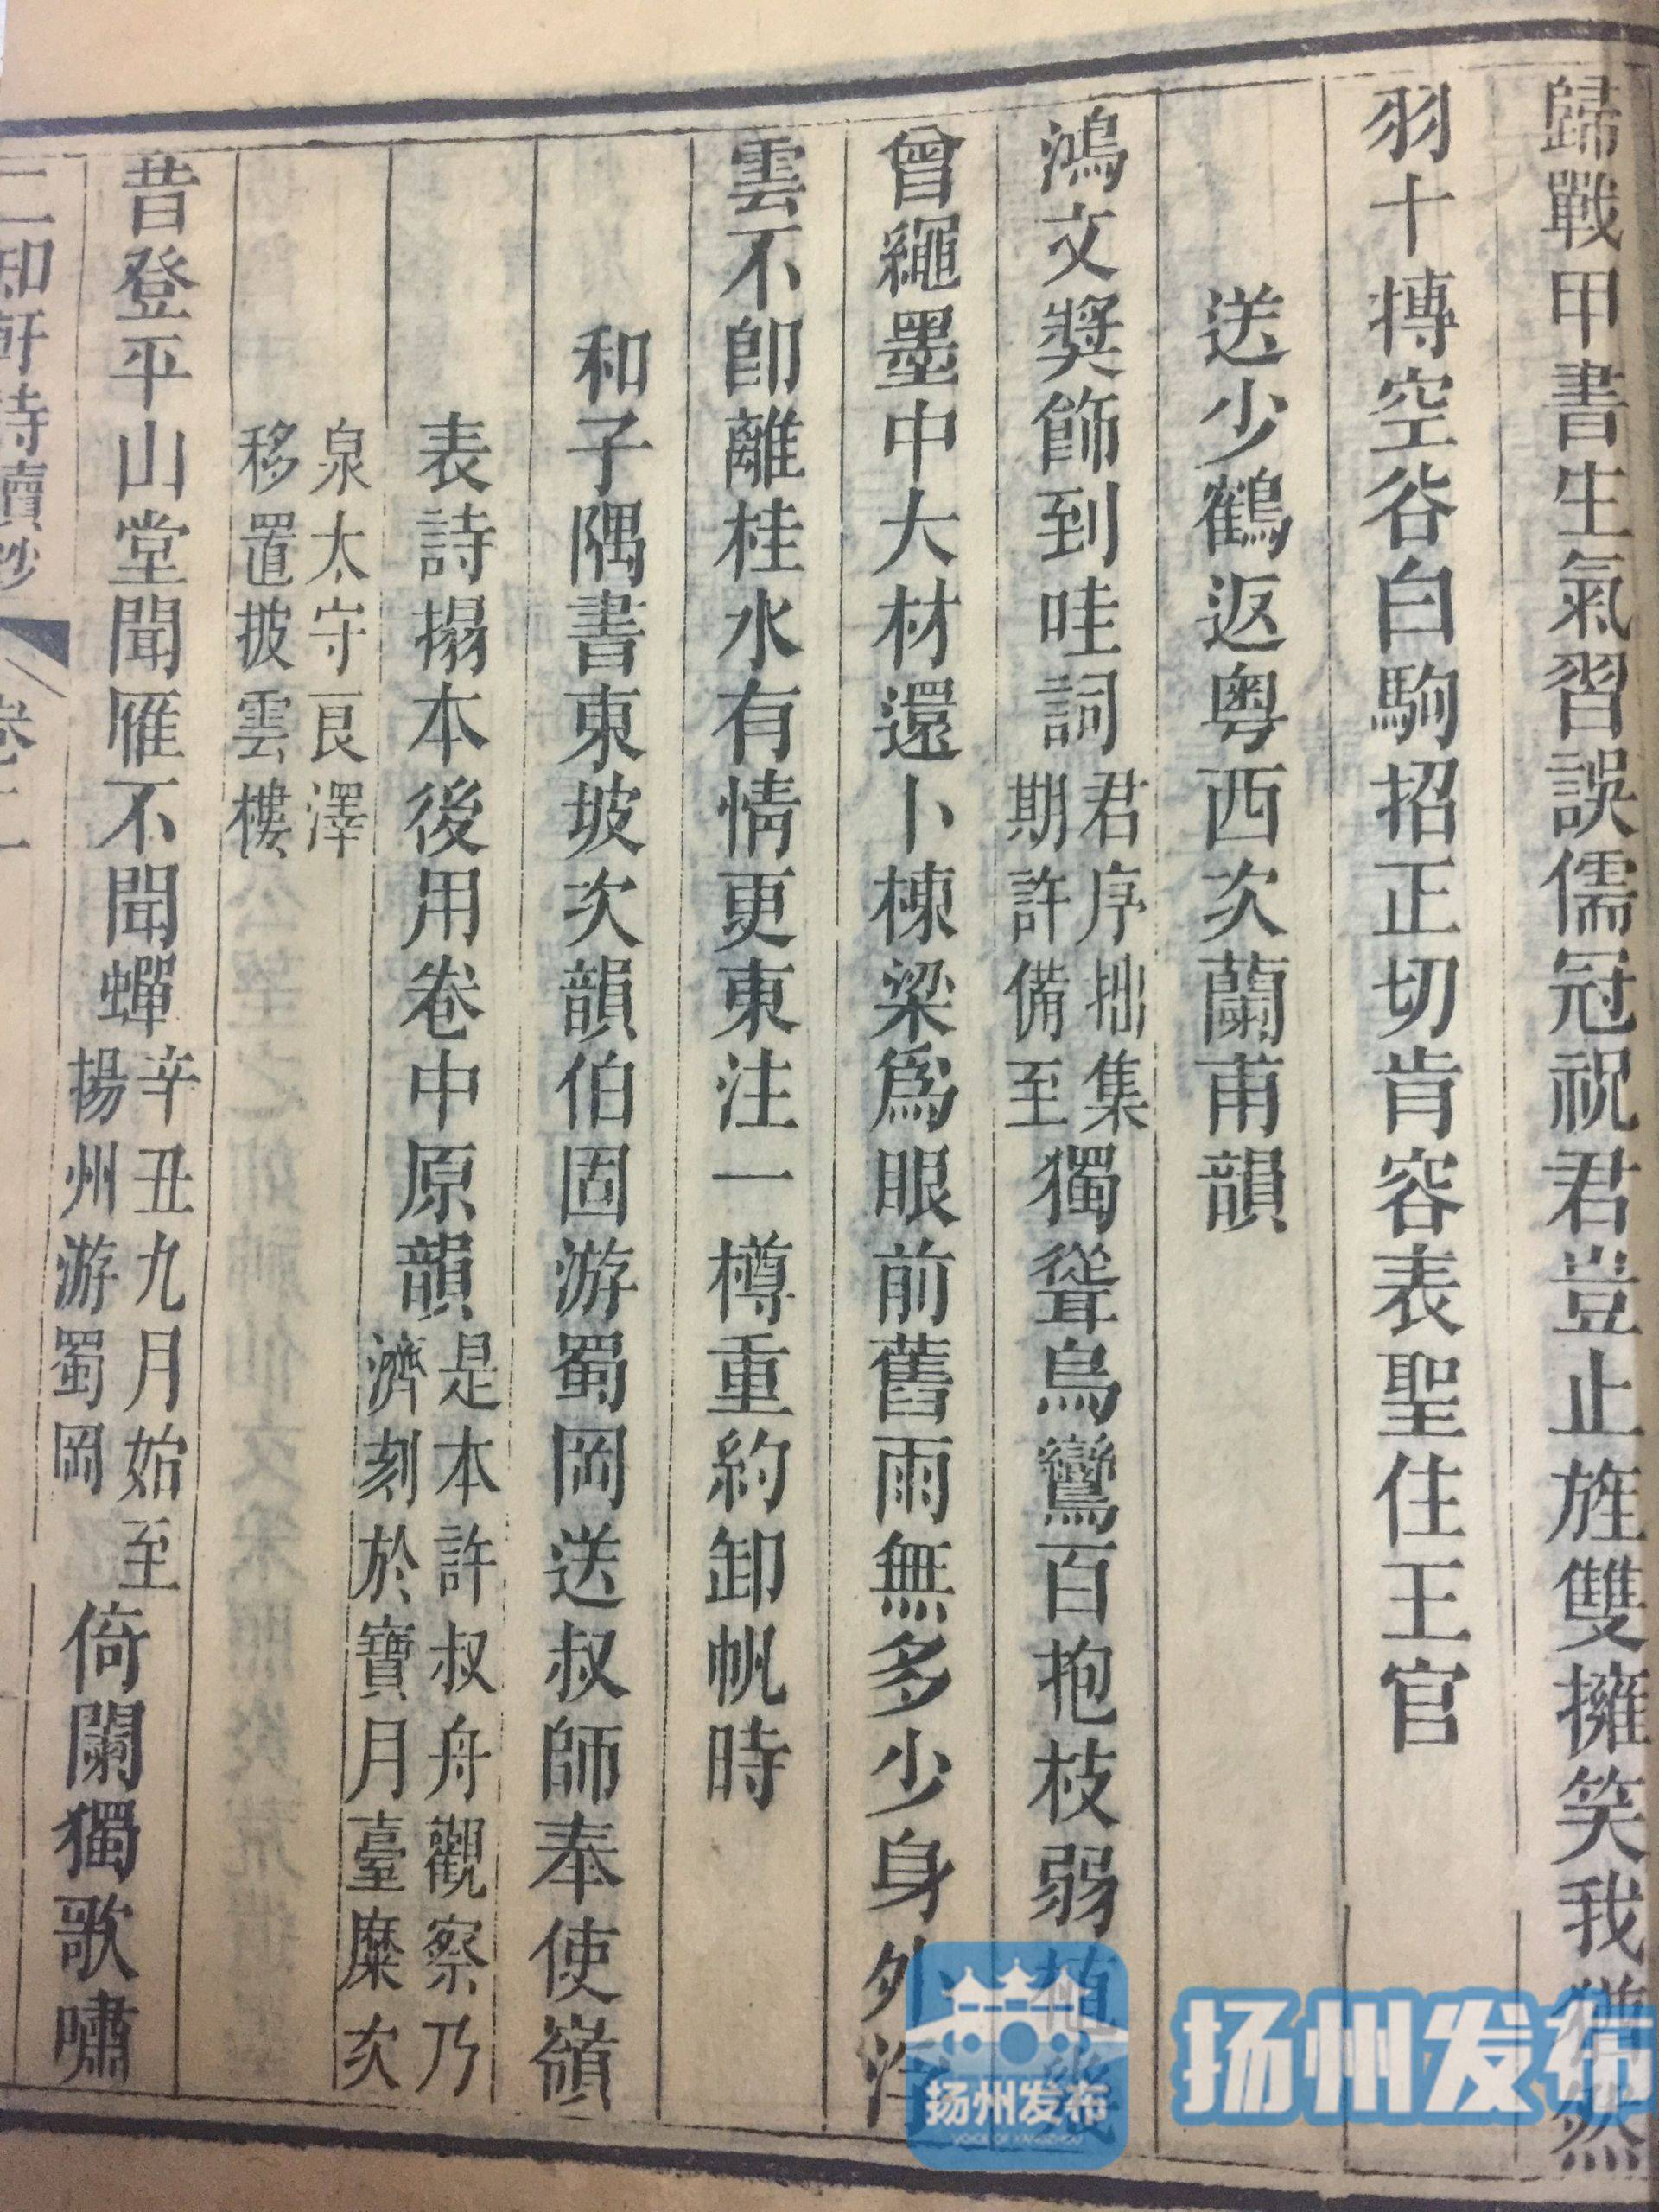 歸戰甲書生氣習誤儒冠祝君豈止旌雙擁笑我猶然
羽十摶空谷白駒招正切肯容表聖住王官
送少鶴返粵西次蘭甫韻
鴻文獎飾到哇詞君序拙集期許備至獨聳烏鸞百抱枝弱植幾
曾繩墨中大材還卜棟梁爲眼前舊雨無多少身外浮
雲不卽離桂水有情更東注一樽重約卸帆時
和子隅書東坡次韻伯固游蜀岡送叔師奉使嶺
表詩搨本後用卷中原韻是本許叔舟觀察乃濟刻於寶月臺糜次
泉太守艮澤移置披雲樓
昔登平山堂聞雁不聞蟬辛丑九月始至揚州游蜀岡倚闌獨歌嘯
二知軒詩續鈔 卷二
扬州发布
VOICE OF YANGZHOU
扬州发布